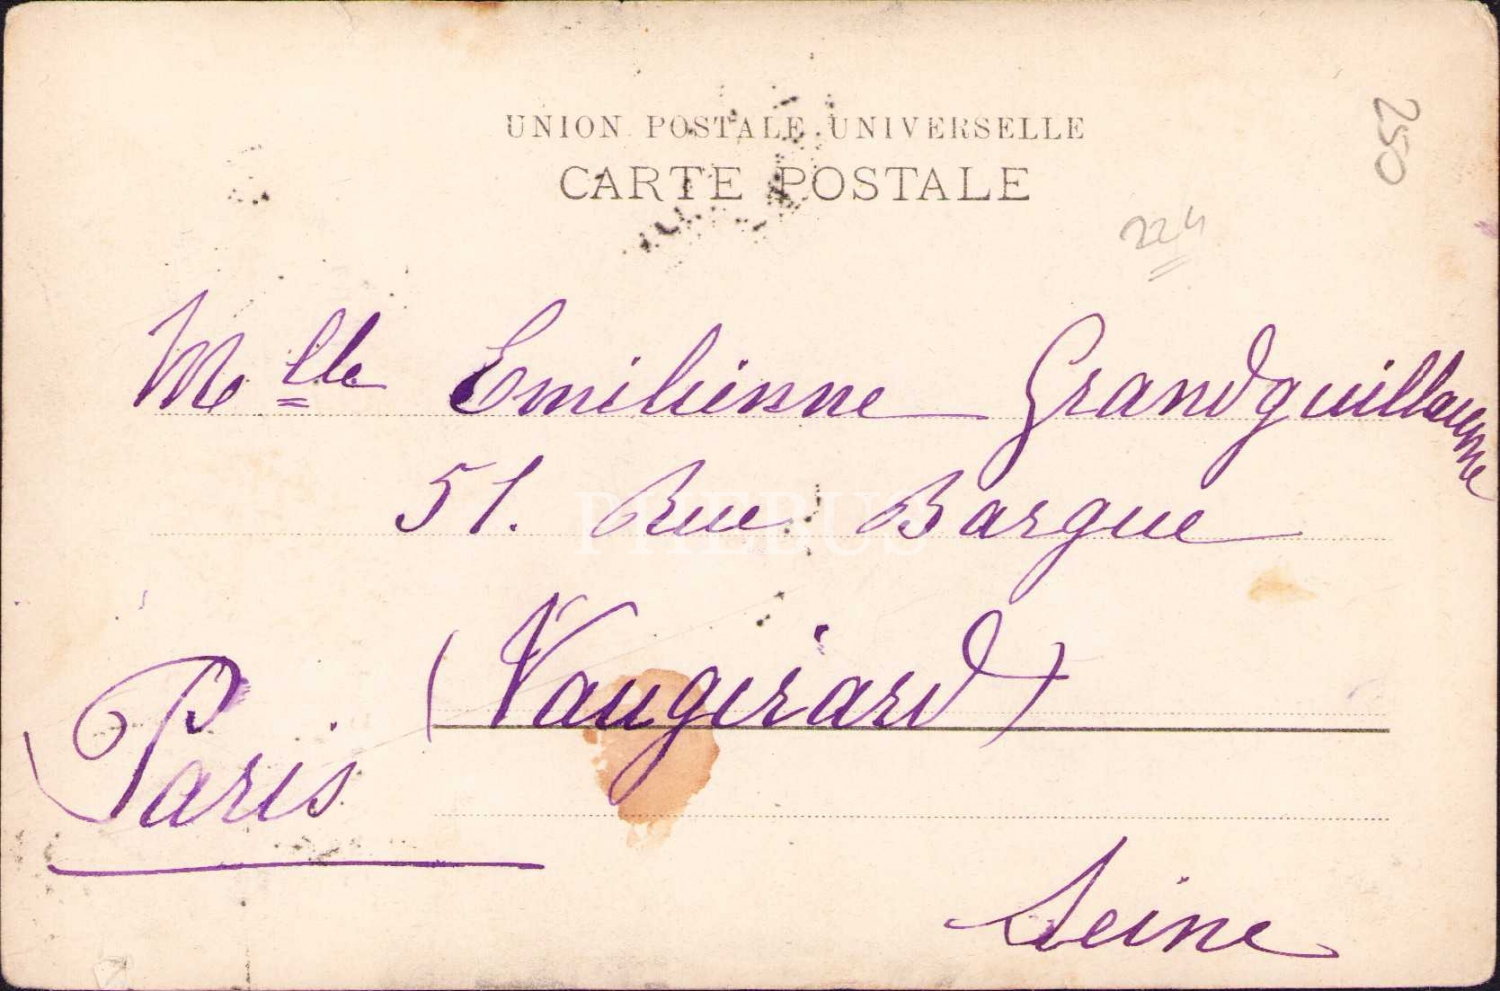 UNION POSTALE UNIVERSELLE
CARTE POSTALE
250
224
Mlle Emilienne Grandguillaume
51. Rue Bargue
PHEBUS
(Vaugirard)
Paris
Seine